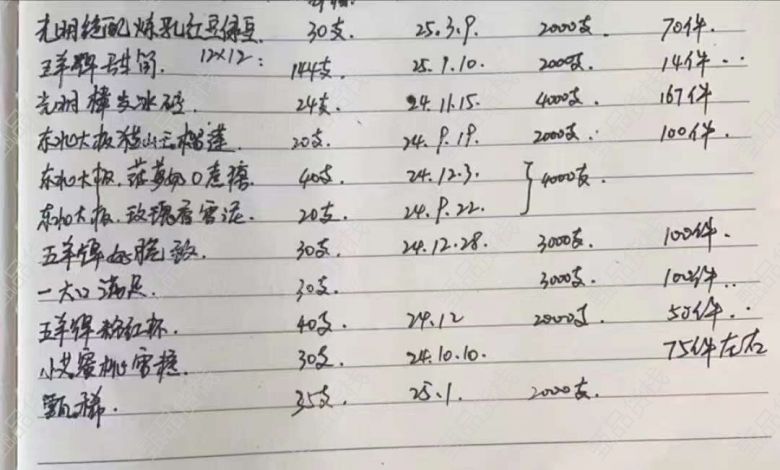 光明绝配炼乳红豆绿豆 30支. 25.3.9. 2000支 70件.
五羊牌 筒. 12×12: 144支. 25.1.10. 2000支. 14件..
光明棒 冰砖. 24支. 24.11.15. 4000支. 167件
东北大板猫山王榴莲. 20支. 24.9.19. 2000支. 100件.
东北大板. 焦糖 40支. 24.12.3. } 4000支.
东北大板. 玫瑰香雪泥. 20支. 24.9.22.
五羊牌 脆 . 30支. 24.12.28. 3000支. 100件.
一大口满足. 30支. 3000支. 100件..
五羊牌粉红杯. 40支. 24.12 2000支. 50件..
小 蜜桃雪糕. 30支. 24.10.10. 75件左右
甄稀. 35支. 25.1. 2000支.